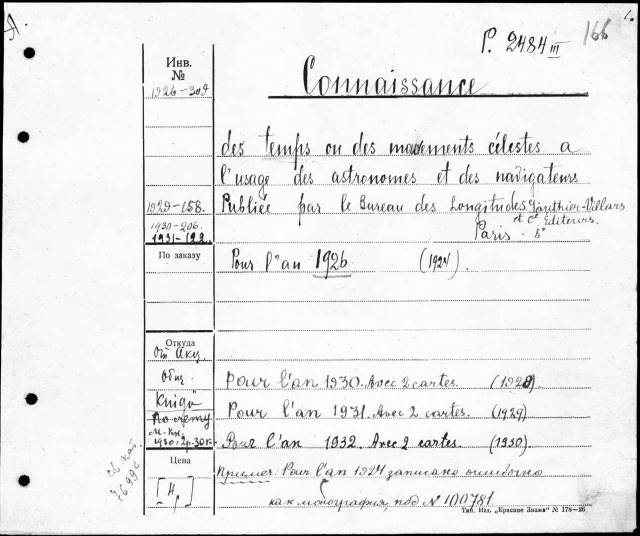 166
P. 2484 III
Инв.
№
1926-309
Connaissance
des temps ou des mouvements célestes a
l'usage des astronomes et des navigateurs
1929-158.
Publiée par le Bureau des Longitudes. Gauthier-Villars
et Cie Editeurs.
1930-206.
1931-122.
Paris - 8°
По заказу
Pour l'an 1926 (1924).
Откуда
От Акц
Общ.
Pour l'an 1930. Avec 2 cartes. (1928)
Книга
Pour l'an 1931. Avec 2 cartes. (1929)
По счету
М. Кн.
1930: 2р.30к.
Pour l'an 1932. Avec 2 cartes. (1930)
Цена
Примеч: Pour l'an 1924 записано ошибочно
[4р]
как монография, под N 100781.
Тип. Изд. „Красное Знамя" № 178—26